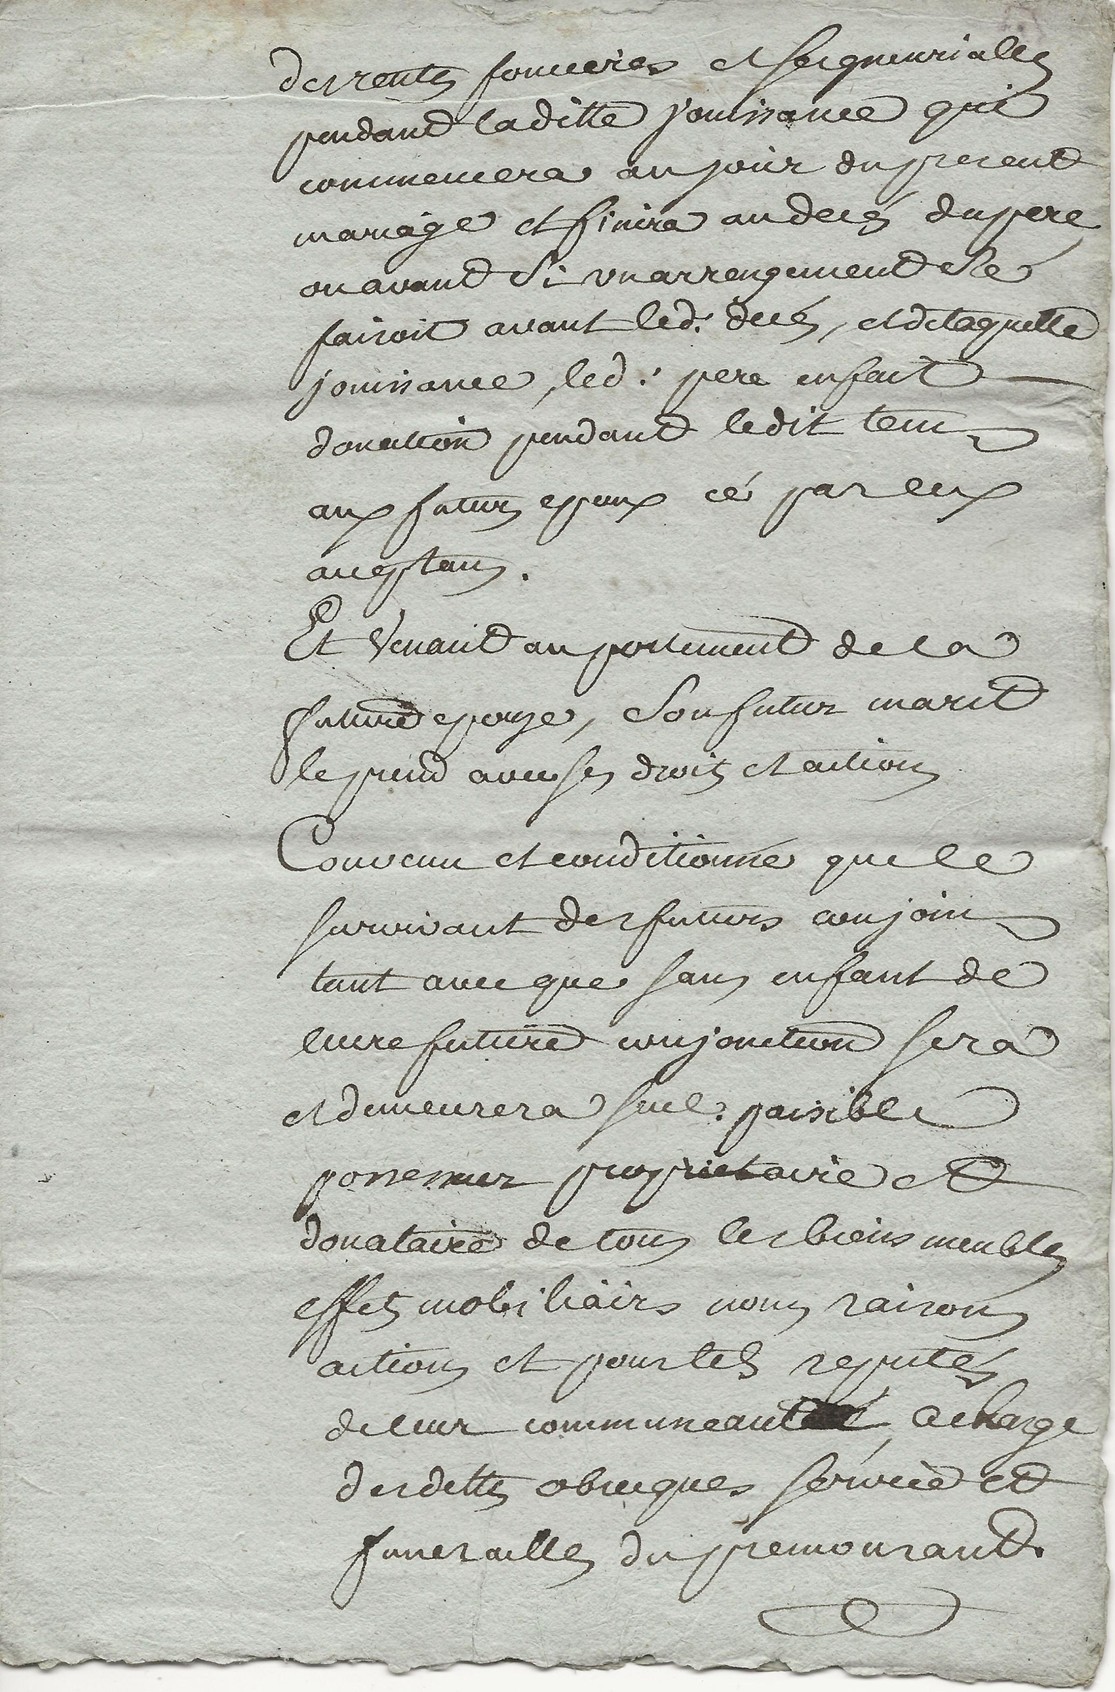 des rentes foncieres et seigneurialles
pendand laditte jouissance qui
commencera au jour du present
mariage et finira au decés du pere
ou avand si un arrengemend sé
faisoit avant led. decés, et de laquelle
jouissance, led. pere en fait
donation pendand ledit tems
aux futurs epoux cé par eux
acceptans.
Et Venand au portemend de la
future epouze, son futur marit
le prend avec ses droits et actions
Convenu et conditionné que le
survivant des futurs conjoins
tant avec que sans enfant de
leure future conjonction sera
et demeurera seul. paisible
possesseur proprietaire et
donataire de tous les biens meubles
effets mobiliairs noms raisons
actions et pour tels reputés
de leur communeauté, a charge
des dettes obseques service et
funerailles du premourand.